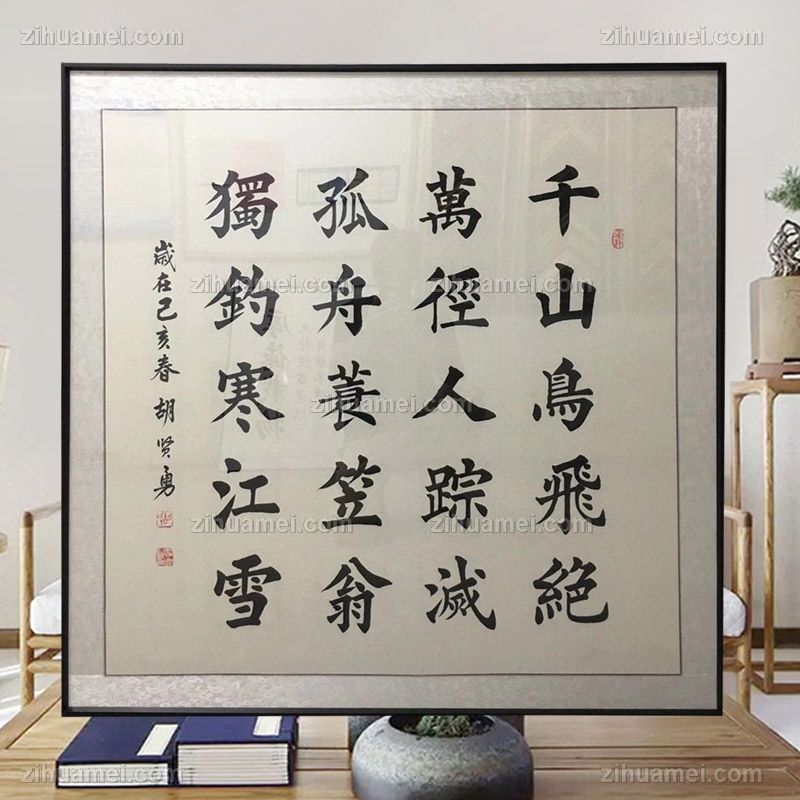 千山鳥飛絶
萬徑人踪滅
孤舟蓑笠翁
獨釣寒江雪
歲在己亥春 胡贤勇
zihuamei.com
zihuamei.com
zihuamei.com
zihuamei.com
zihuamei.com
zihuamei.com
zihuamei.com
zihuamei.com
zihuamei.com
zihuamei.com
zihuamei.com
zihuamei.com